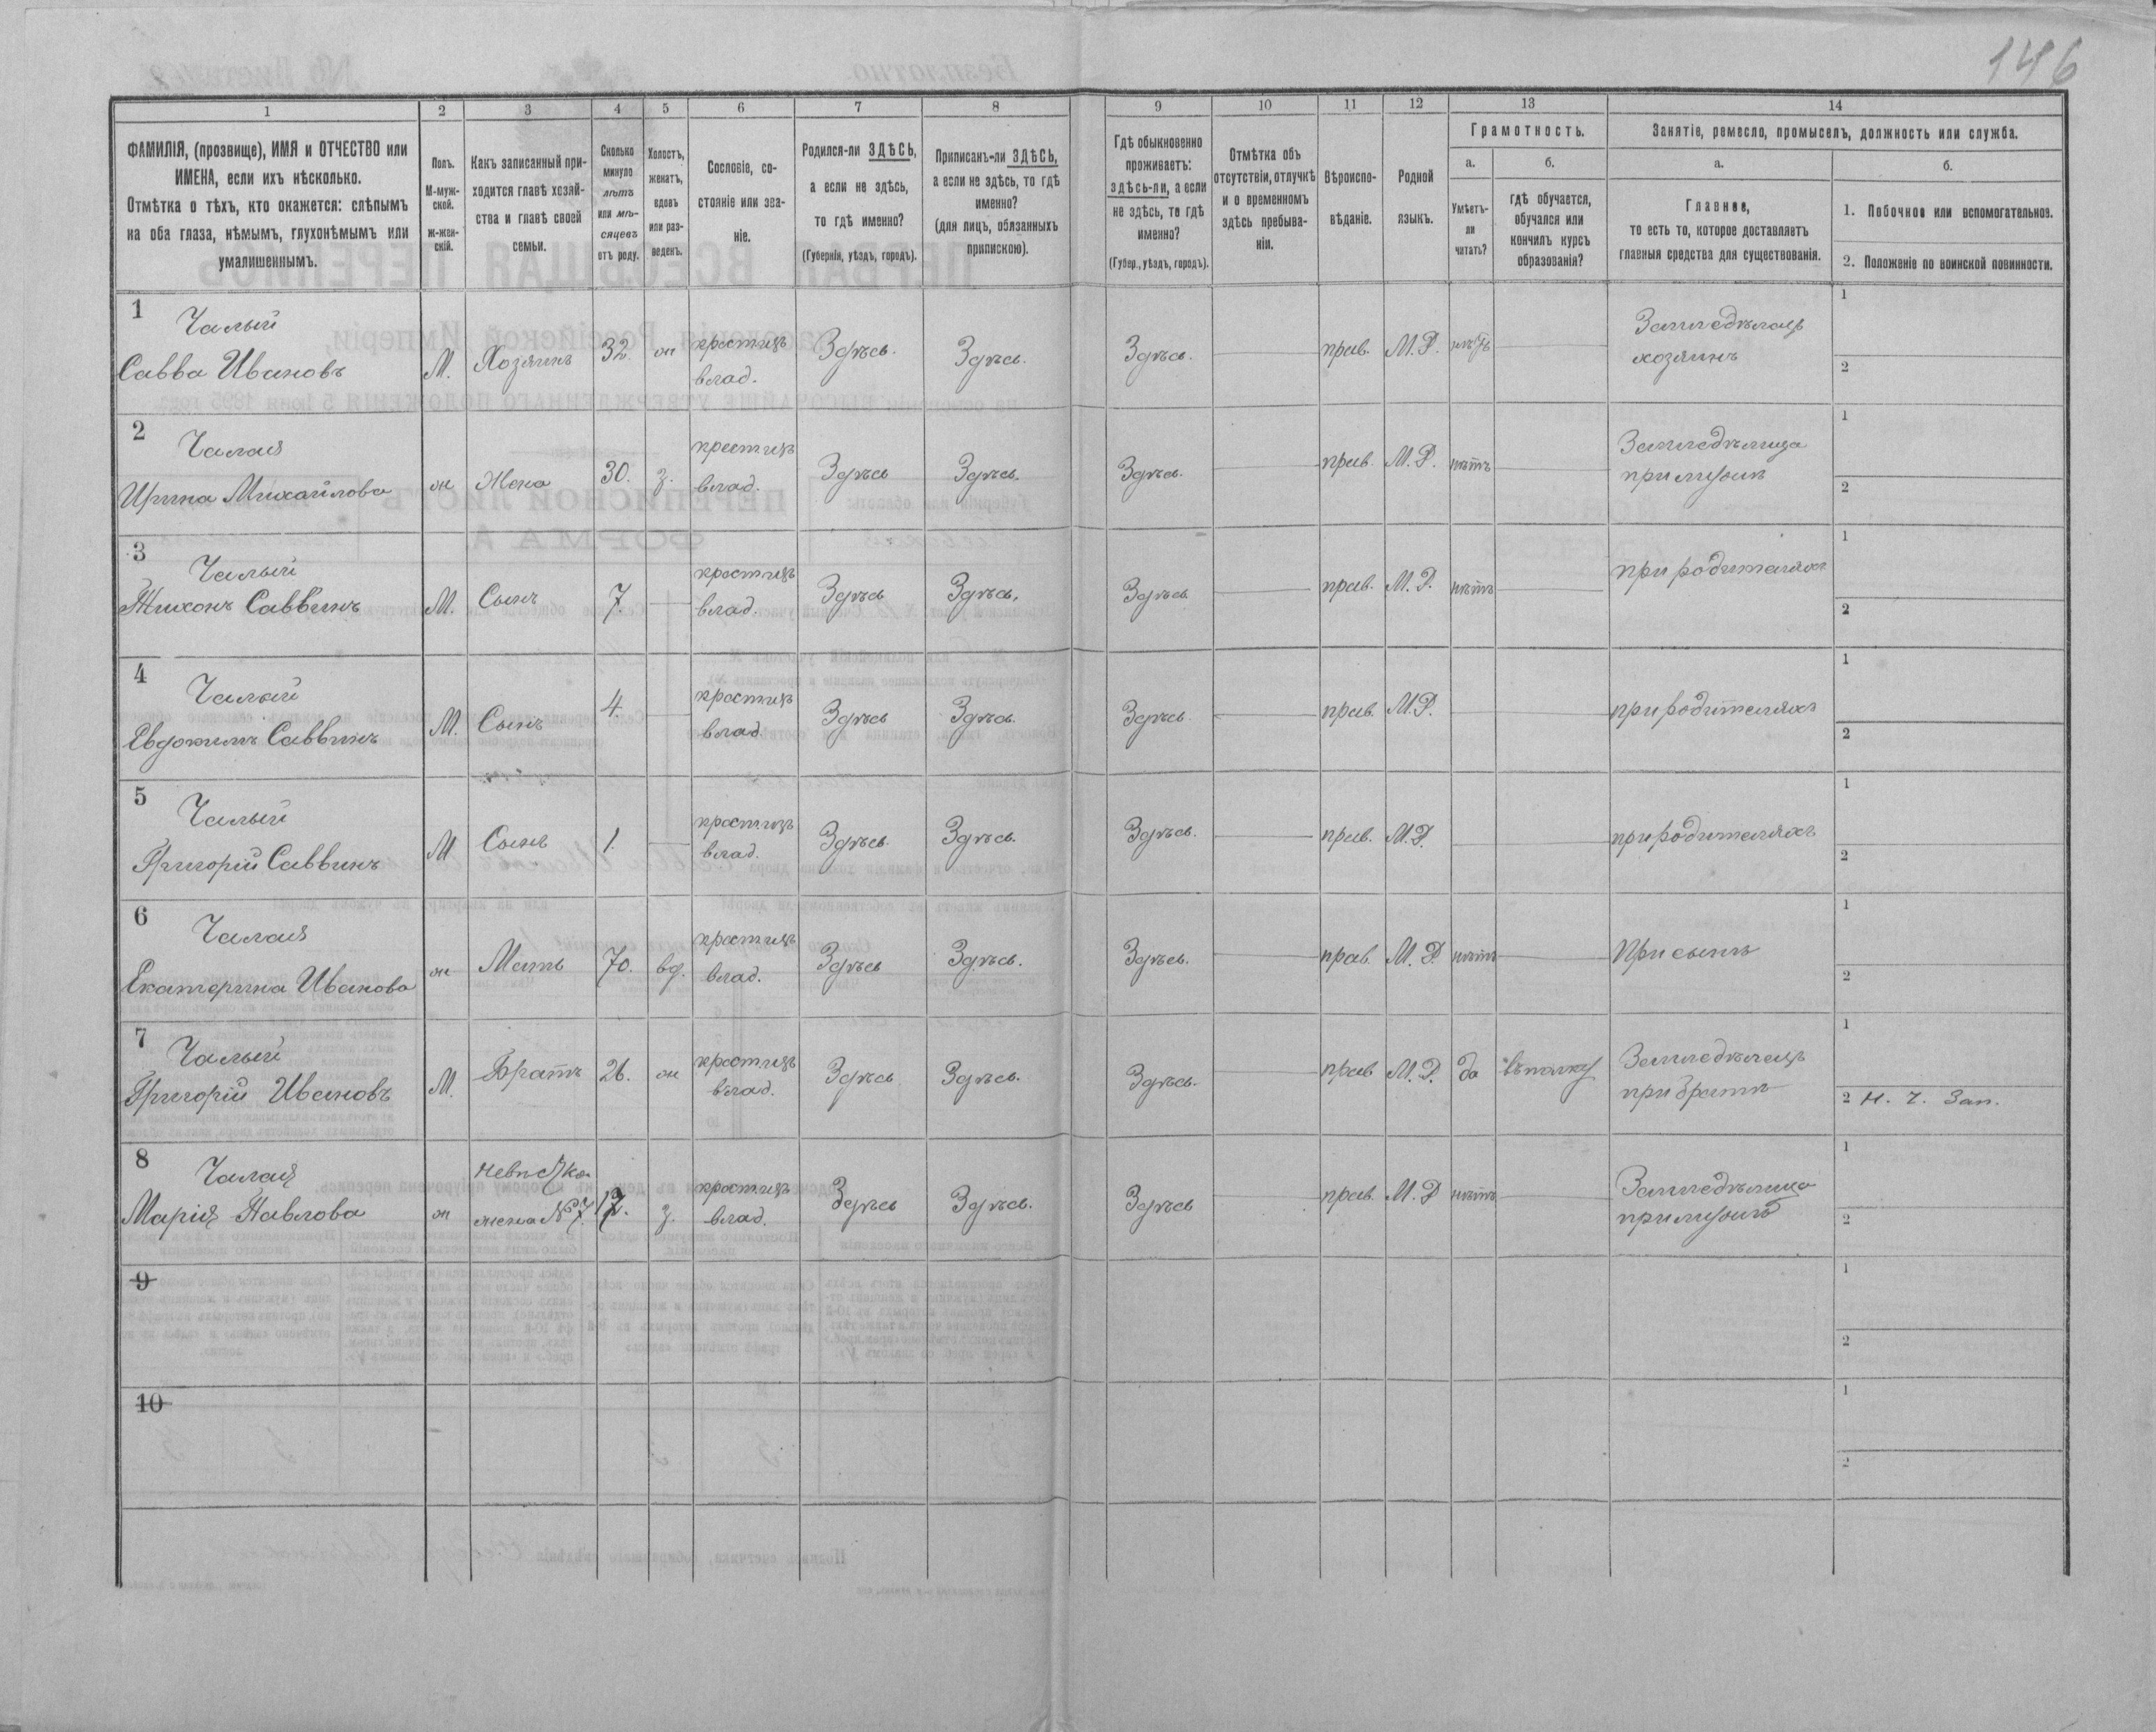 146
1 2 3 4 5 6 7 8 9 10 11 12 13 14
ФАМИЛІЯ, (прозвище), ИМЯ и ОТЧЕСТВО или
ИМЕНА, если ихъ нѣсколько.
Отмѣтка о тѣхъ, кто окажется: слѣпымъ
на оба глаза, нѣмымъ, глухонѣмымъ или
умалишеннымъ.
Полъ.
М-муж-
ской.
Ж-жен-
скій.
Какъ записанный при-
ходится главѣ хозяй-
ства и главѣ своей
семьи.
Сколько
минуло
лѣтъ
или мѣ-
сяцевъ
отъ роду.
Холостъ,
женатъ,
вдовъ
или раз-
веденъ.
Сословіе, со-
стояніе или зва-
ніе.
Родился-ли ЗДѢСЬ,
а если не здѣсь,
то гдѣ именно?
(Губернія, уѣздъ, городъ).
Приписанъ-ли ЗДѢСЬ,
а если не здѣсь, то гдѣ
именно?
(для лицъ, обязанныхъ
припискою).
Гдѣ обыкновенно
проживаетъ:
здѣсь-ли, а если
не здѣсь, то гдѣ
именно?
(Губер., уѣздъ, городъ).
Отмѣтка объ
отсутствіи, отлучкѣ
и о временномъ
здѣсь пребыва-
ніи.
Вѣроиспо-
вѣданіе.
Родной
языкъ.
Грамотность.
а.
Умѣетъ-
ли
читать?
б.
гдѣ обучается,
обучался или
кончилъ курсъ
образованія?
Занятіе, ремесло, промыселъ, должность или служба.
а.
Главное,
то есть то, которое доставляетъ
главныя средства для существованія.
б.
1. Побочное или вспомогательное.
2. Положеніе по воинской повинности.
1
Чалый
Савва Ивановъ
М. Хозяинъ 32. ж
крестизъ
влад.
Здѣсь. Здѣсь. Здѣсь. прав. М.Р.
Земледѣлецъ
хозяинъ
1
2
2
Чалая
Ирина Михайлова
ж Жена 30. з.
крестизъ
влад.
Здѣсь Здѣсь. Здѣсь. прав. М.Р. нѣтъ
Земледѣлица
при мужѣ
1
2
3
Чалый
Тихонъ Саввинъ
М. Сынъ 7.
крестизъ
влад.
Здѣсь Здѣсь. Здѣсь прав. М.Р. нѣтъ
при родителяхъ
1
2
4
Чалый
Евдокимъ Саввинъ
М. Сынъ 4.
крестизъ
влад
Здѣсь Здѣсь. Здѣсь. прав. М.Р.
при родителяхъ
1
2
5
Чалый
Григорій Саввинъ
М Сынъ 1.
крестизъ
влад.
Здѣсь. Здѣсь. Здѣсь. прав. М.Р.
при родителяхъ
1
2
6
Чалая
Екатерина Иванова
ж Мать 70. вд.
крестизъ
влад.
Здѣсь Здѣсь. Здѣсь. прав. М.Р. нѣтъ
При сынѣ
1
2
7
Чалый
Григорій Ивановъ
М. Братъ 26. ж
крестизъ
влад.
Здѣсь Здѣсь. Здѣсь. прав М.Р. да въ полку
Земледѣлецъ
при братѣ
1
2 Н. Ч. Зап.
8
Чалая
Марія Павлова
ж
невѣстка
жена №7.
з.
крестизъ
влад.
Здѣсь Здѣсь. Здѣсь прав. М.Р нѣтъ
Земледѣлица
при мужѣ
1
2
9
1
2
10
1
2